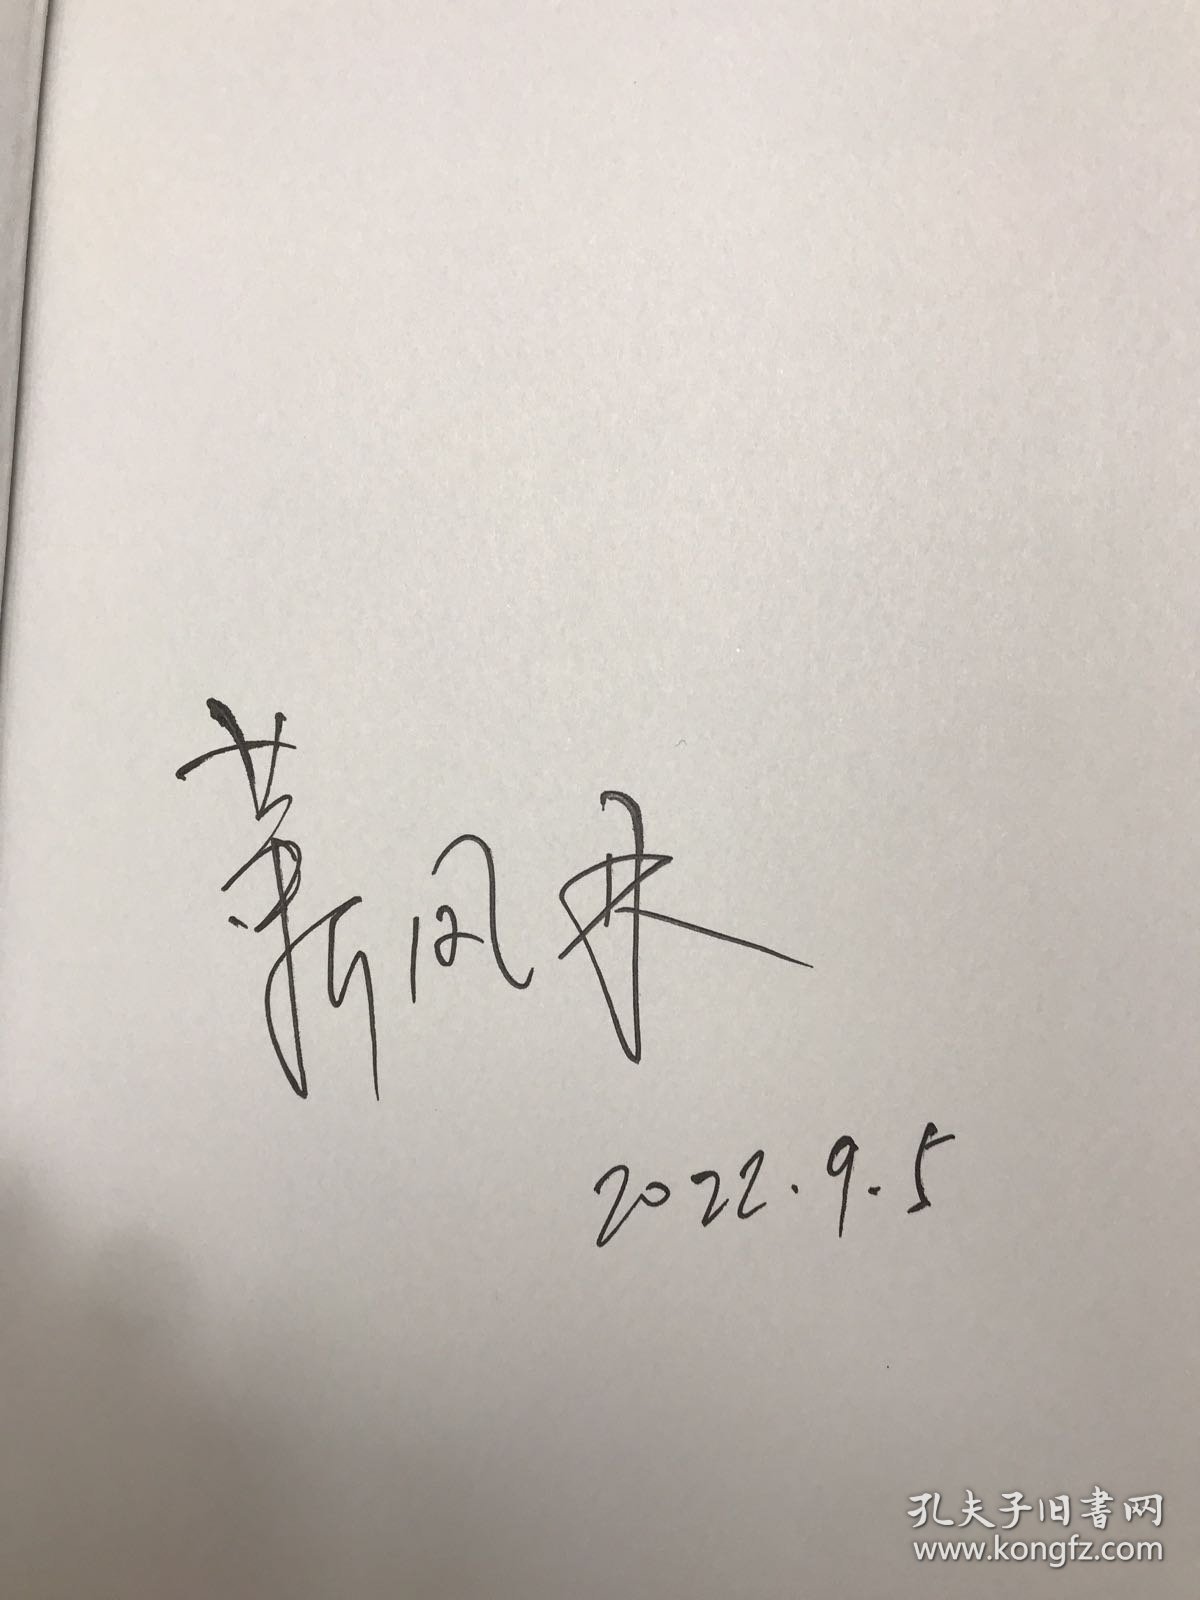 靳凤林
2022.9.5
孔夫子旧书网
www.kongfz.com